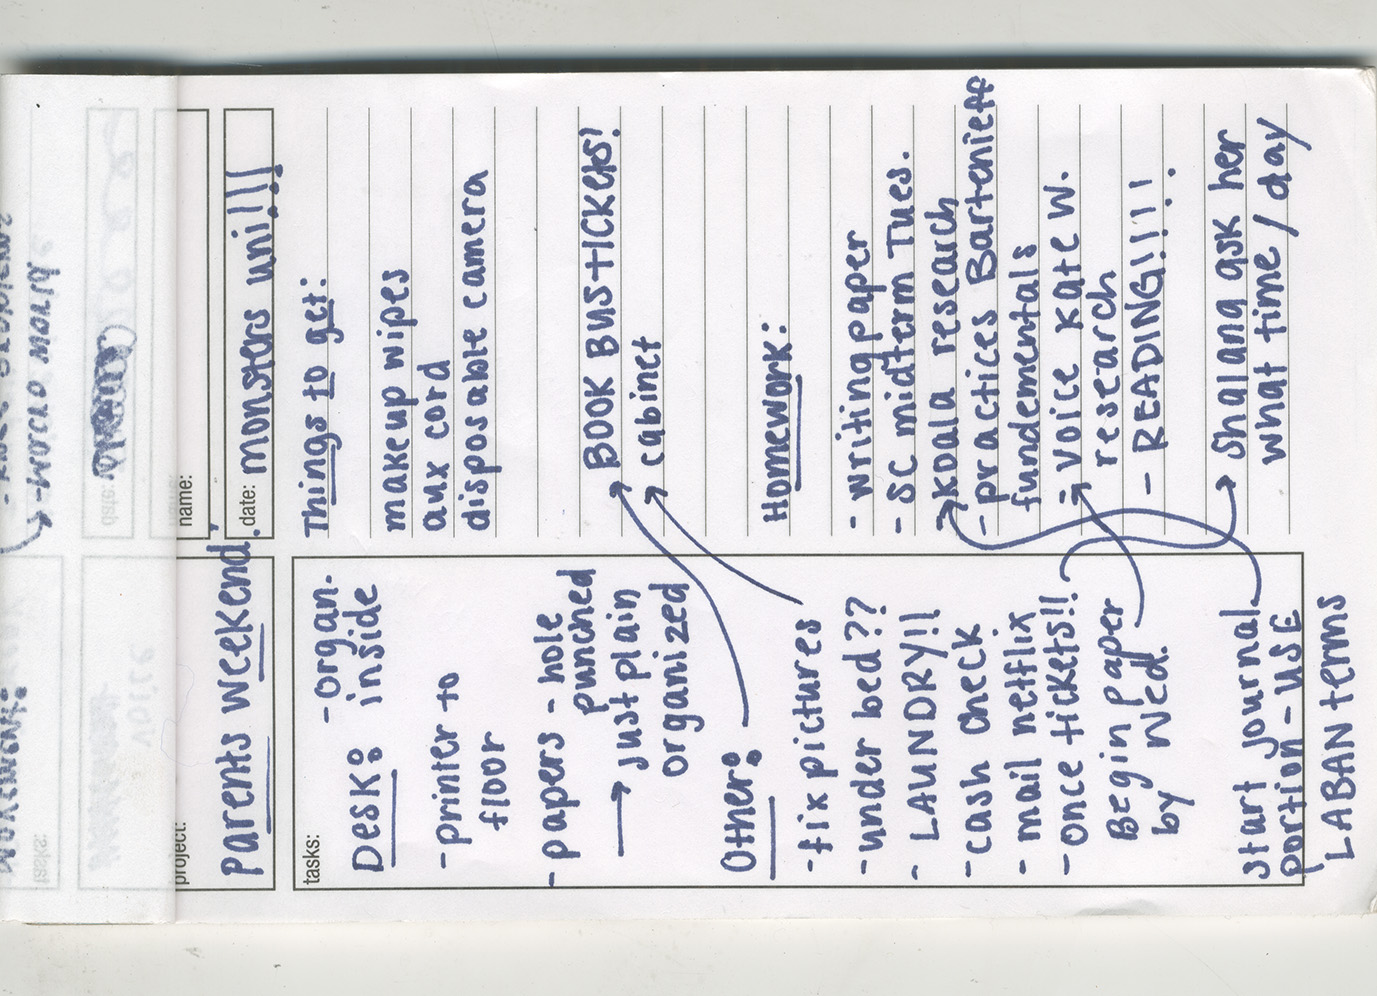 project:
parents weekend,
name:
date: monsters uni!!!
tasks:
Desk: -organ-
inside
-printer to
floor
-papers - hole
punched
→ just plain
organized
Other:
-fix pictures
-under bed??
- LAUNDRY!!
-cash check
- mail netflix
-once tickets!!
Begin paper
by Wed.
start journal
portion - USE
LABAN terms
Things to get:
makeup wipes
aux cord
disposable camera
BOOK BUS TICKETS!
cabinet
Homework:
- writing paper
- SC midterm Tues.
- koala research
- practices Bartenieff
fundementals
- voice Kate W.
research
- READING!!!!
Shalang ask her
what time / day